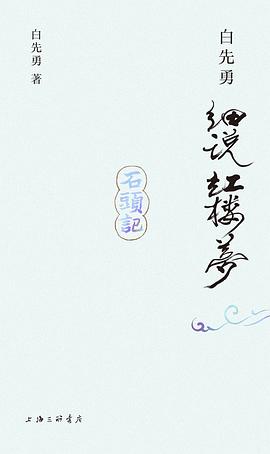 白先勇
细说红楼梦
石頭記
白先勇 著
上海三联书店